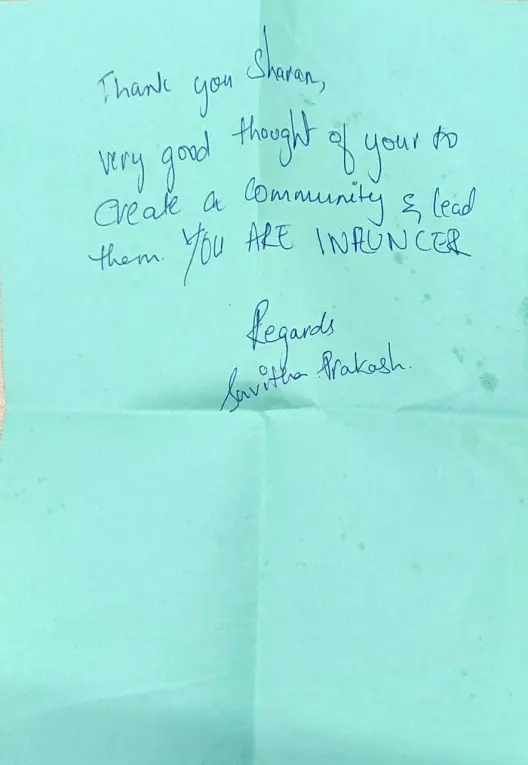 Thank you Sharan,
very good thought of your to
create a community & lead
them. YOU ARE INFLUNCER
Regards
Savitha Prakash.